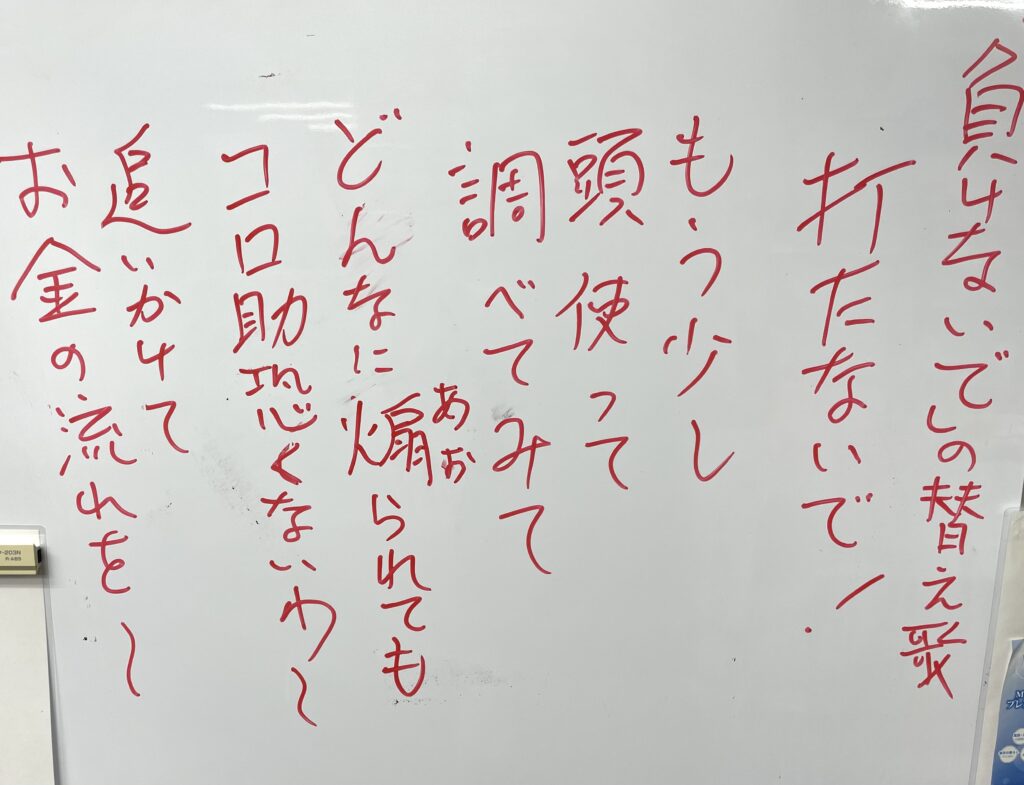 負けないでの替え歌
打たないで!
もう少し
頭使って
調べてみて
どんなに煽られても
あお
コロ助恐くないわ〜
追いかけて
お金の流れを〜